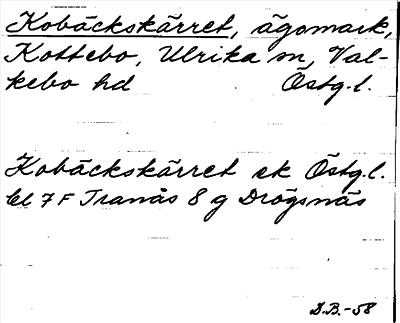 Kobäckskärret, ägomark,
Kottebo, Ulrika sn, Val-
kebo hd Östg.l.
Kobäckskärret ek Östg.l.
bl 7 F Tranås 8 g Drögsnäs
D.B.-58